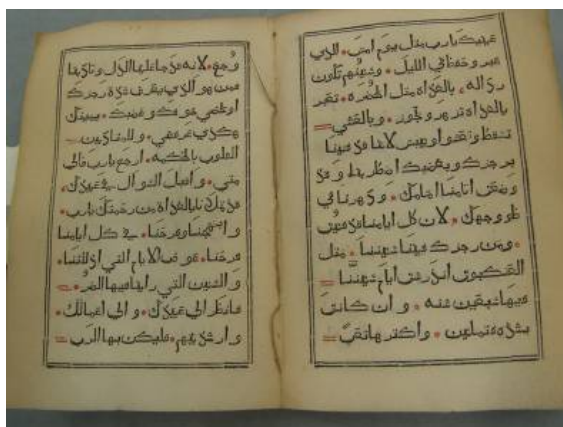 عينيك يارب مثل يوم امس * الذي
عبر وحفظ في الليل * وسنيهم تكون
رذاله * بالغداة مثل الخضره * تعبر
بالغداة تزهر وتجوز * وبالعشي
تسقط وتقسو وتيبس لانا قد فنينا
برجزك وبغضبك اضطربنا وقد
وضعت اثامنا امامك * ودهرنا في
ضو وجهك * لان كل ايامنا قد فنيت
* ومن رجزك فنينا سنيننا * مثل
العنكبوت ايام سنيننا
فيها سبعين سنه * وان كانت
بشده فثمانين * واكثرها تعب
وجع * لانه قد جا علينا الذل وتادبنا
فمن هو الذي يعرف قوة رجزك
او يحصي خوفك وغضبك * يمينك
هكذي عرفني * وللمتادبين
القلوب بالحكمه * ارجع يارب فالي
متي * واقبل السوال في عبيدك *
بالغداة من رحمتك يارب *
وابتهجنا وفرحنا * في كل ايامنا
فرحنا * عوض الايام التي اذللتنا *
والسنين التي راينا فيها الضر *
فانظر الي عبيدك * والي اعمالك *
وارشد بنيهم * فليكن بها الرب